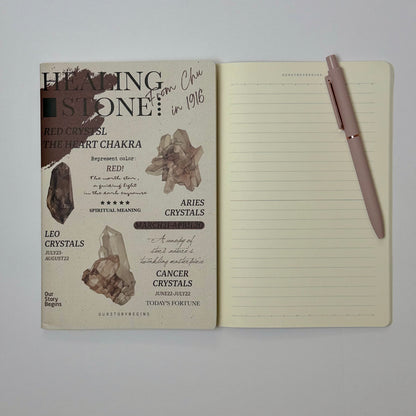 HEALING
STONE:
From Chu
in 1916
RED CRYSTSL
THE HEART CHAKRA
Represent color:
RED!
The north star,
a guiding light
in the dark expanse
★★★★★
SPIRITUAL MEANING
ARIES
CRYSTALS
MARCH21-APRIL20
LEO
CRYSTALS
JULY23-
AUGUST22
CANCER
CRYSTALS
JUNE22-JULY22
TODAY'S FORTUNE
Our
Story
Begins
OURSTORYBEGINS
OURSTORYBEGINS